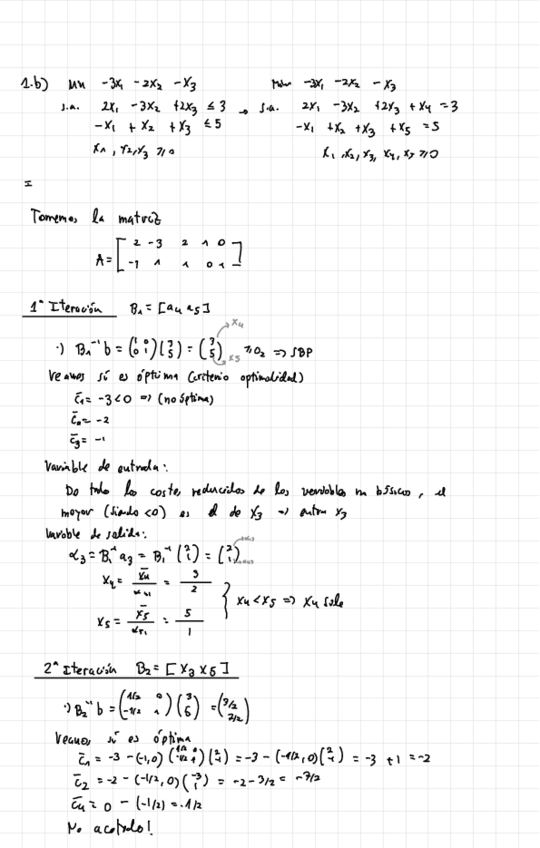 1.b) Min -3x₁ -2x₂ -x₃ Min -3x₁ -2x₂ -x₃
s.a. 2x₁ -3x₂ +2x₃ ≤ 3 → s.a. 2x₁ -3x₂ +2x₃ +x₄ = 3
-x₁ + x₂ + x₃ ≤ 5 -x₁ +x₂ +x₃ +x₅ = 5
x₁, x₂, x₃ ≥ 0 x₁, x₂, x₃, x₄, x₅ ≥ 0
=
Tomemos la matriz
A = [ 2 -3 2 1 0
-1 1 1 0 1 ]
1ª Iteración B₁ = [a₄ a₅]
·) B₁⁻¹ b = (1 0 / 0 1)(3 / 5) = (3 / 5) → x₄ → x₅ ≥ 0₂ => SBP
Veamos si es óptima (criterio optimalidad)
c̄₁ = -3 < 0 => (no óptima)
c̄₂ = -2
c̄₃ = -1
Variable de entrada:
De todo los costes reducidos de los variables no básicas, el
mayor (siendo <0) es el de x₃ => entra x₃
Variable de salida:
α₃ = B₁⁻¹ a₃ = B₁⁻¹ (2 / 1) = (2 / 1)
x₄ = x̄₄ = 3 / 2
x₅ = x̄₅ = 5 / 1 } x₄ < x₅ => x₄ sale
2ª Iteración B₂ = [x₃ x₅]
·) B₂⁻¹ b = (1/2 0 / -1/2 1)(3 / 5) = (3/2 / 7/2)
Veamos si es óptima
c̄₁ = -3 - (-1, 0)(1/2 0 / -1/2 1)(2 / -1) = -3 - (-1/2, 0)(2 / -1) = -3 + 1 = -2
c̄₂ = -2 - (-1/2, 0)(-3 / 1) = -2 - 3/2 = -7/2
c̄₄ = 0 - (-1/2) = 1/2
No acotado!